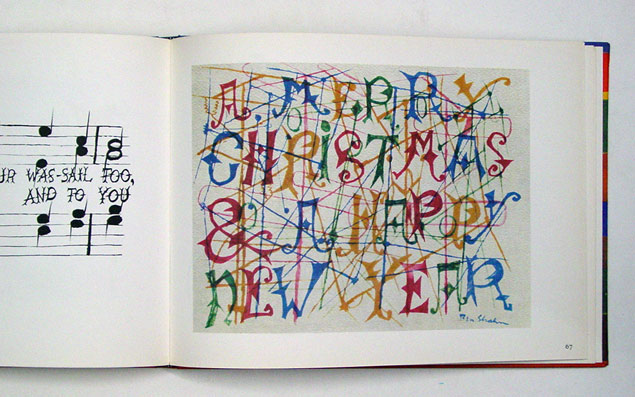 UR WAS-SAIL TOO,
AND TO YOU
A MERRY
CHRISTMAS
& A HAPPY
NEW YEAR
Ben Shahn
67